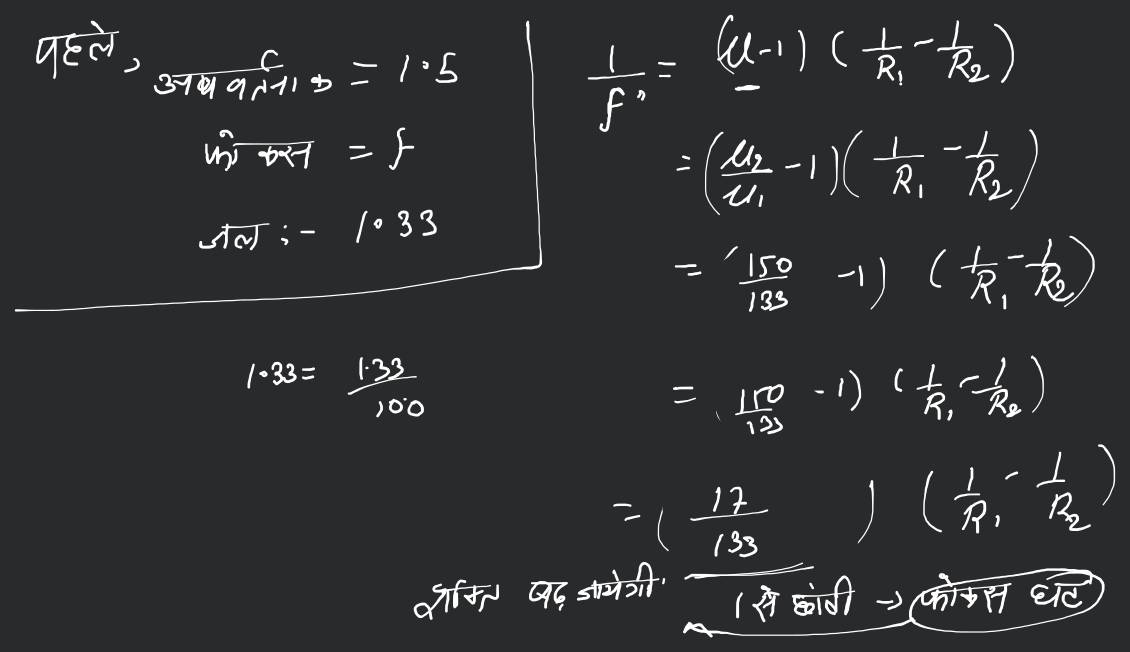 पहले,
अपवर्तनांक = 1.5
फोकस = f
जल :- 1.33
1.33 = 1.33/100
1/f" = (μ-1) (1/R₁ - 1/R₂)
= (μ₂/μ₁ - 1) (1/R₁ - 1/R₂)
= 150/133 - 1) (1/R₁ - 1/R₂)
= (150/133 - 1) (1/R₁ - 1/R₂)
= (17/133) (1/R₁ - 1/R₂)
शक्ति बढ़ जायेगी 1 से छोटी → फोकस घट